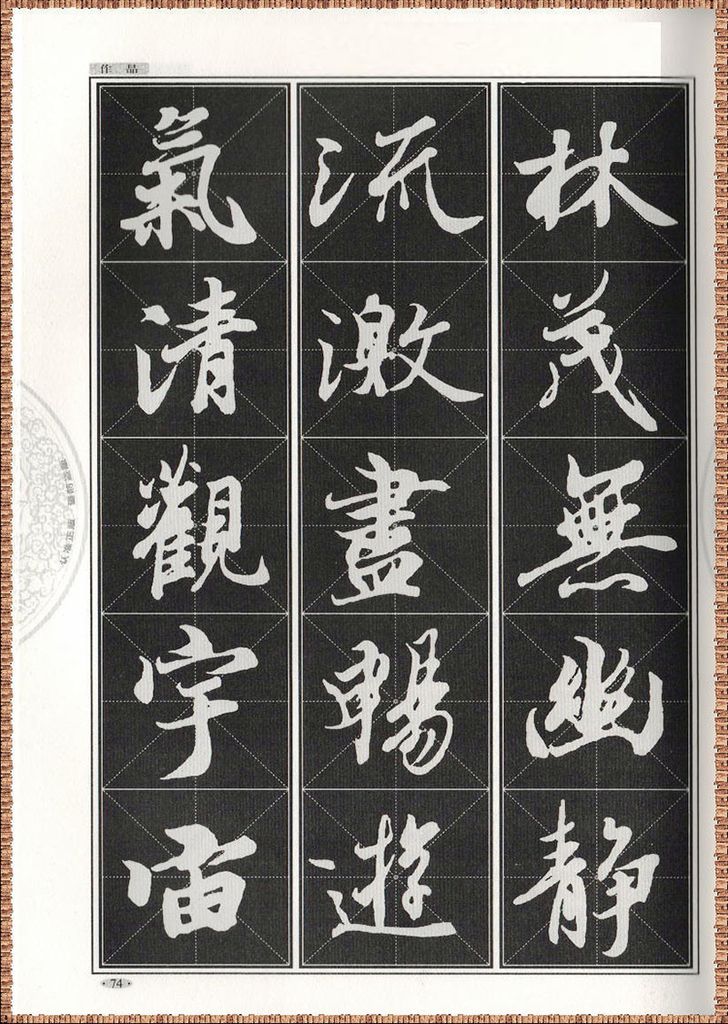 作品
林茂無幽静
流激盡暢遊
氣清觀宇宙
74